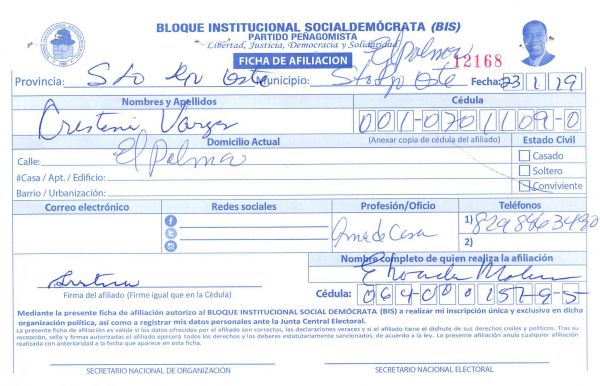 BLOQUE INSTITUCIONAL SOCIALDEMÓCRATA (BIS)
PARTIDO PEÑAGOMISTA
Libertad, Justicia, Democracia y Solidaridad
El Palmar
FICHA DE AFILIACION
12168
Provincia: Sto Dgo Oste Municipio: Stodgo Oste Fecha: 23/1/19
Nombres y Apellidos
Cédula
Vargas
001-0701109-0
Domicilio Actual
(Anexar copia de cédula del afiliado)
Estado Civil
Calle: El Palmar
Casado
#Casa / Apt. / Edificio:
Soltero
Barrio / Urbanización:
Conviviente
Correo electrónico
Redes sociales
Profesión/Oficio
Teléfonos
Ama de Casa
1) 8298463490
2)
Nombre completo de quien realiza la afiliación
Firma del afiliado (Firme igual que en la Cédula)
Cédula:
Mediante la presente ficha de afiliación autorizo al BLOQUE INSTITUCIONAL SOCIAL DEMÓCRATA (BIS) a realizar mi inscripción única y exclusiva en dicha
organización política, así como a registrar mis datos personales ante la Junta Central Electoral.
La presente ficha de afiliación es válida si los datos ofrecidos por el afiliado son correctos, las declaraciones veraces y si el afiliado tiene el disfrute de sus derechos civiles y políticos. Tras su
recepción, sello y firmas autorizadas el afiliado ejercerá todos los derechos y los deberes estatutariamente sancionados, de acuerdo a la ley. La presente afiliación anula cualquier afiliación
realizada con anterioridad a la fecha que aparece en esta ficha.
SECRETARIO NACIONAL DE ORGANIZACIÓN
SECRETARIO NACIONAL ELECTORAL